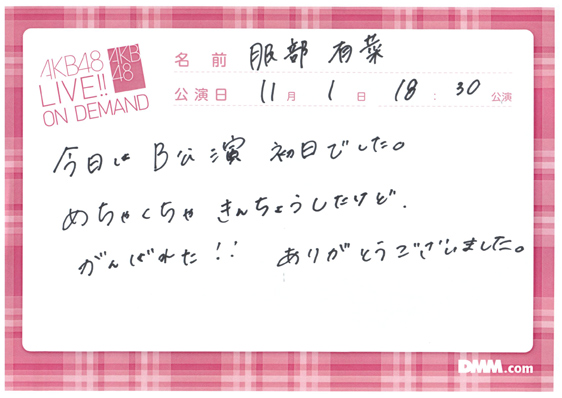 AKB48
LIVE!!
ON DEMAND
AKB
48
名前 服部 有菜
公演日 11月 1日 18:30 公演
今日は B公演 初日でした。
めちゃくちゃ きんちょうしたけど、
がんばれた!! ありがとうございました。
DMM.com